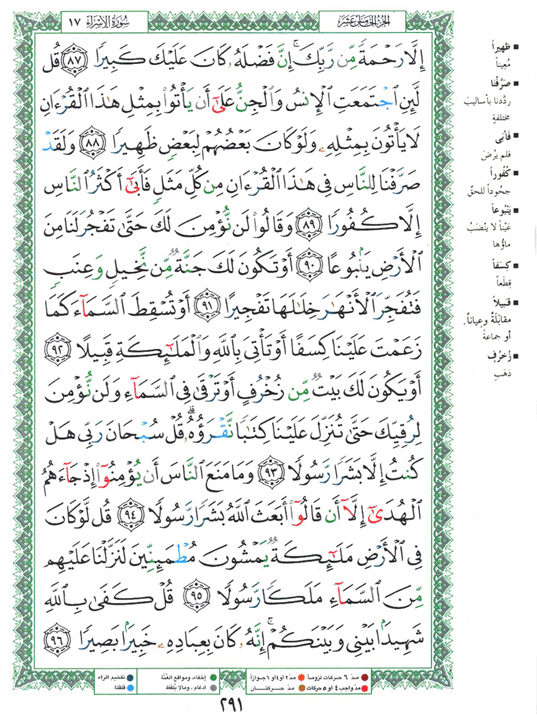 الجزء الخامس عشر
سورة الإسراء ١٧
إِلَّا رَحْمَةً مِّن رَّبِّكَ ۚ إِنَّ فَضْلَهُۥ كَانَ عَلَيْكَ كَبِيرًا ٨٧ قُل
لَّئِنِ ٱجْتَمَعَتِ ٱلْإِنسُ وَٱلْجِنُّ عَلَىٰٓ أَن يَأْتُوا۟ بِمِثْلِ هَٰذَا ٱلْقُرْءَانِ
لَا يَأْتُونَ بِمِثْلِهِۦ وَلَوْ كَانَ بَعْضُهُمْ لِبَعْضٍ ظَهِيرًا ٨٨ وَلَقَدْ
صَرَّفْنَا لِلنَّاسِ فِى هَٰذَا ٱلْقُرْءَانِ مِن كُلِّ مَثَلٍ فَأَبَىٰٓ أَكْثَرُ ٱلنَّاسِ
إِلَّا كُفُورًا ٨٩ وَقَالُوا۟ لَن نُّؤْمِنَ لَكَ حَتَّىٰ تَفْجُرَ لَنَا مِنَ
ٱلْأَرْضِ يَنۢبُوعًا ٩٠ أَوْ تَكُونَ لَكَ جَنَّةٌ مِّن نَّخِيلٍ وَعِنَبٍ
فَتُفَجِّرَ ٱلْأَنْهَٰرَ خِلَٰلَهَا تَفْجِيرًا ٩١ أَوْ تُسْقِطَ ٱلسَّمَآءَ كَمَا
زَعَمْتَ عَلَيْنَا كِسَفًا أَوْ تَأْتِىَ بِٱللَّهِ وَٱلْمَلَٰٓئِكَةِ قَبِيلًا ٩٢
أَوْ يَكُونَ لَكَ بَيْتٌ مِّن زُخْرُفٍ أَوْ تَرْقَىٰ فِى ٱلسَّمَآءِ وَلَن نُّؤْمِنَ
لِرُقِيِّكَ حَتَّىٰ تُنَزِّلَ عَلَيْنَا كِتَٰبًا نَّقْرَؤُهُۥ ۗ قُلْ سُبْحَانَ رَبِّى هَلْ
كُنتُ إِلَّا بَشَرًا رَّسُولًا ٩٣ وَمَا مَنَعَ ٱلنَّاسَ أَن يُؤْمِنُوٓا۟ إِذْ جَآءَهُمُ
ٱلْهُدَىٰٓ إِلَّآ أَن قَالُوٓا۟ أَبَعَثَ ٱللَّهُ بَشَرًا رَّسُولًا ٩٤ قُل لَّوْ كَانَ
فِى ٱلْأَرْضِ مَلَٰٓئِكَةٌ يَمْشُونَ مُطْمَئِنِّينَ لَنَزَّلْنَا عَلَيْهِم
مِّنَ ٱلسَّمَآءِ مَلَكًا رَّسُولًا ٩٥ قُلْ كَفَىٰ بِٱللَّهِ
شَهِيدًۢا بَيْنِى وَبَيْنَكُمْ ۚ إِنَّهُۥ كَانَ بِعِبَادِهِۦ خَبِيرًۢا بَصِيرًا ٩٦
■ ظهيراً
مُعيناً
■ صرّفنا
ردّدنا بأساليبَ
مختلفةٍ
■ فأبى
فلم يرْضَ
■ كُفُوراً
جحُوداً للحقّ
■ يَنْبُوعاً
عَيْناً لا يَنْضَبُ
ماؤها
■ كِسَفاً
قِطَعاً
■ قبيلاً
مقابلةً وعياناً،
أو جماعةً
■ زُخرُف
ذهَب
مدّ ٦ حركات لزوماً
مدّ ٢ أو ٤ أو ٦ جوازاً
إخفاء، ومواقع الغُنّة
تفخيم الراء
مدّ واجب ٤ أو ٥ حركات
مدّ حركتان
إدغام، وما لا يُلفظ
قلقلة
٢٩١